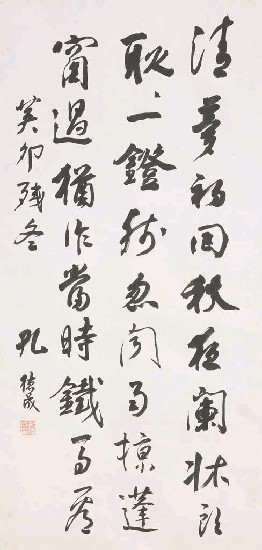 清夢初回秋夜闌牀頭
耿〻一鐙殘忽聞雨掠蓬
窗過猶作當時鐵馬看
癸卯殘冬 孔德成